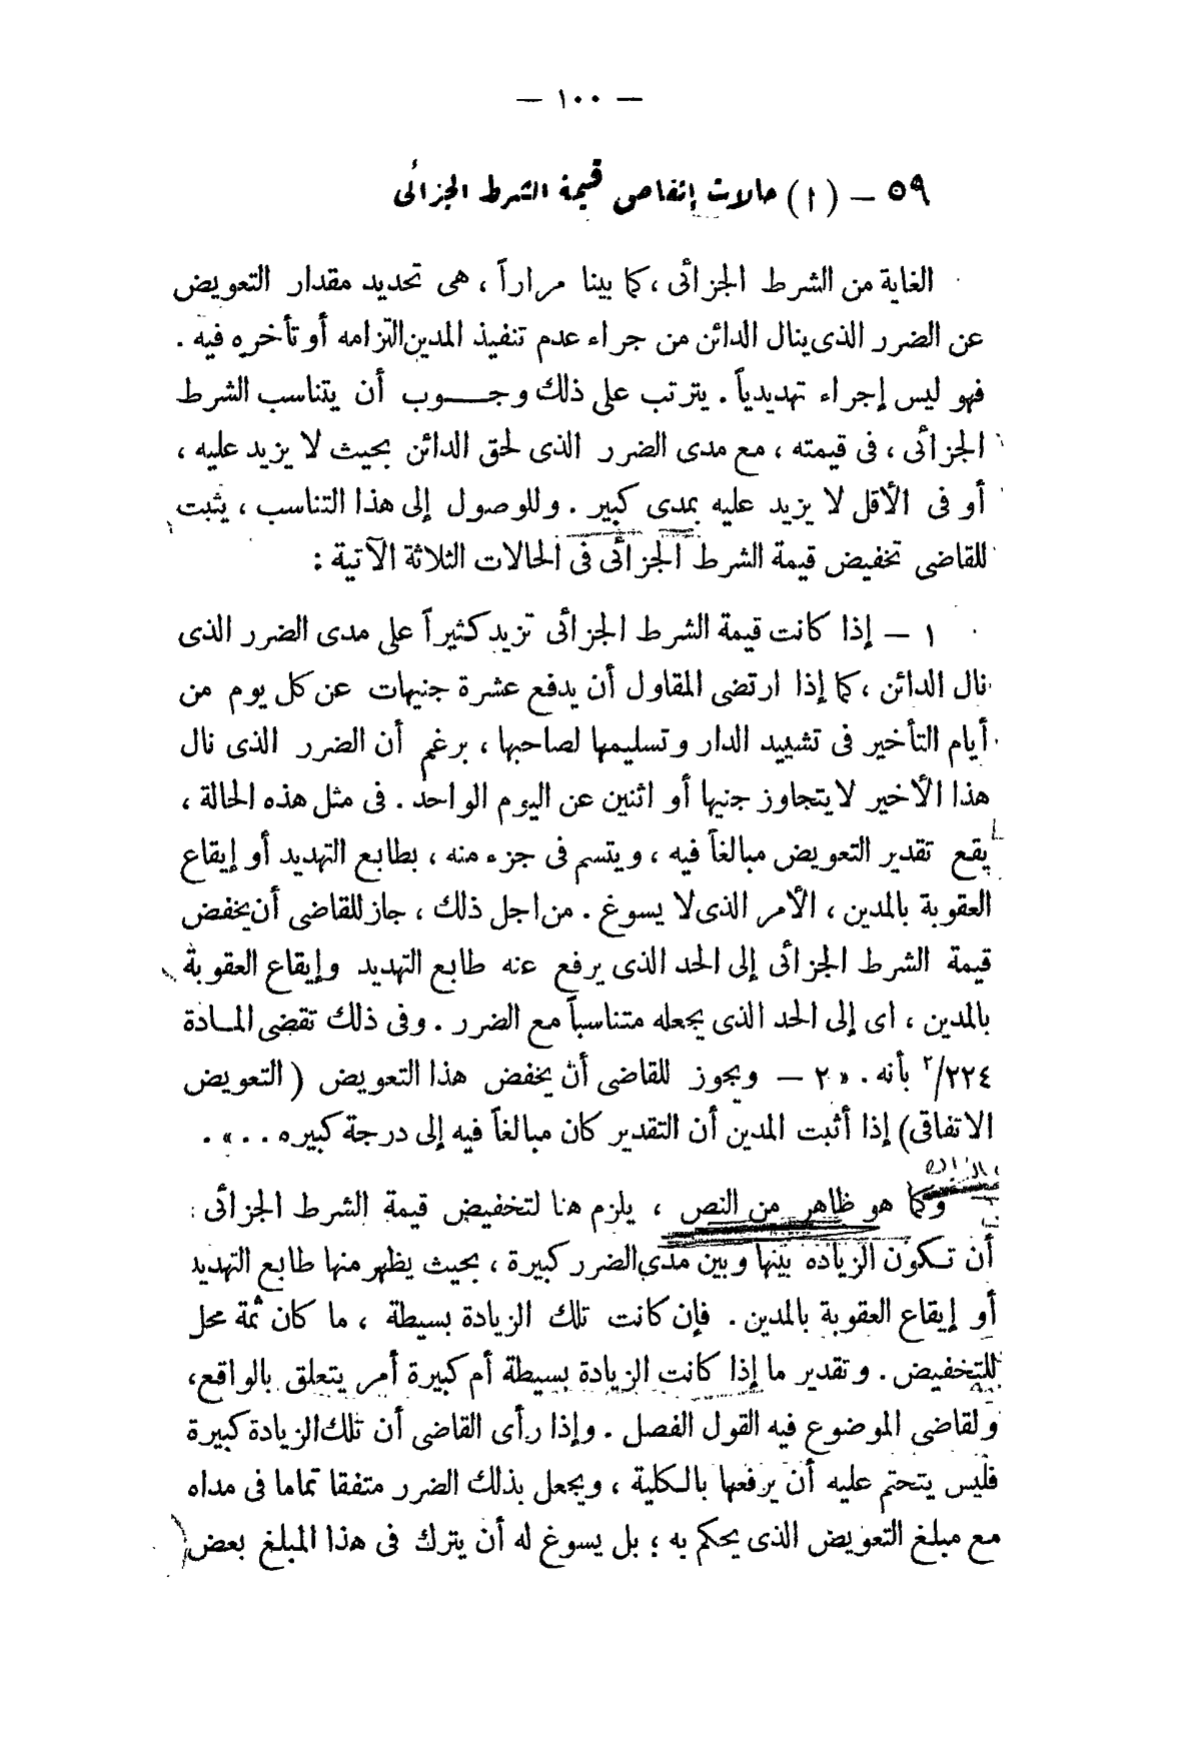 — ١٠٠ —
٥٩ — (١) حالات إنقاص قيمة الشرط الجزائى
الغاية من الشرط الجزائى ، كما بينا مراراً ، هى تحديد مقدار التعويض
عن الضرر الذى ينال الدائن من جراء عدم تنفيذ المدين التزامه أو تأخره فيه .
فهو ليس إجراء تهديدياً . يترتب على ذلك وجـــوب أن يتناسب الشرط
الجزائى ، فى قيمته ، مع مدى الضرر الذى لحق الدائن بحيث لا يزيد عليه ،
أو فى الأقل لا يزيد عليه بمدى كبير . وللوصول إلى هذا التناسب ، يثبت
للقاضى تخفيض قيمة الشرط الجزائى فى الحالات الثلاثة الآتية :
١ — إذا كانت قيمة الشرط الجزائى تزيد كثيراً على مدى الضرر الذى
نال الدائن ، كما إذا ارتضى المقاول أن يدفع عشرة جنيهات عن كل يوم من
أيام التأخير فى تشييد الدار وتسليمها لصاحبها ، برغم أن الضرر الذى نال
هذا الأخير لا يتجاوز جنيها أو اثنين عن اليوم الواحد . فى مثل هذه الحالة ،
يقع تقدير التعويض مبالغاً فيه ، ويتسم فى جزء منه ، بطابع التهديد أو إيقاع
العقوبة بالمدين ، الأمر الذى لا يسوغ . من اجل ذلك ، جاز للقاضى أن يخفض
قيمة الشرط الجزائى إلى الحد الذى يرفع عنه طابع التهديد وإيقاع العقوبة
بالمدين ، اى إلى الحد الذى يجعله متناسباً مع الضرر . وفى ذلك تقضى المـادة
٢/٢٢٤ بأنه . « ٢ — ويجوز للقاضى أن يخفض هذا التعويض ( التعويض
الاتفاقى) إذا أثبت المدين أن التقدير كان مبالغاً فيه إلى درجة كبيره . . » .
وكما هو ظاهر من النص ، يلزم هنا لتخفيض قيمة الشرط الجزائى :
أن تـكون الزياده بينها وبين مدى الضرر كبيرة ، بحيث يظهر منها طابع التهديد
أو إيقاع العقوبة بالمدين . فإن كانت تلك الزيادة بسيطة ، ما كان ثمة محل
للتخفيض . وتقدير ما إذا كانت الزيادة بسيطة أم كبيرة أمر يتعلق بالواقع،
ولقاضى الموضوع فيه القول الفصل . وإذا رأى القاضى أن تلك الزيادة كبيرة
فليس يتحتم عليه أن يرفعها بالـكلية ، ويجعل بذلك الضرر متفقا تماما فى مداه
مع مبلغ التعويض الذى يحكم به ؛ بل يسوغ له أن يترك فى هذا المبلغ بعض